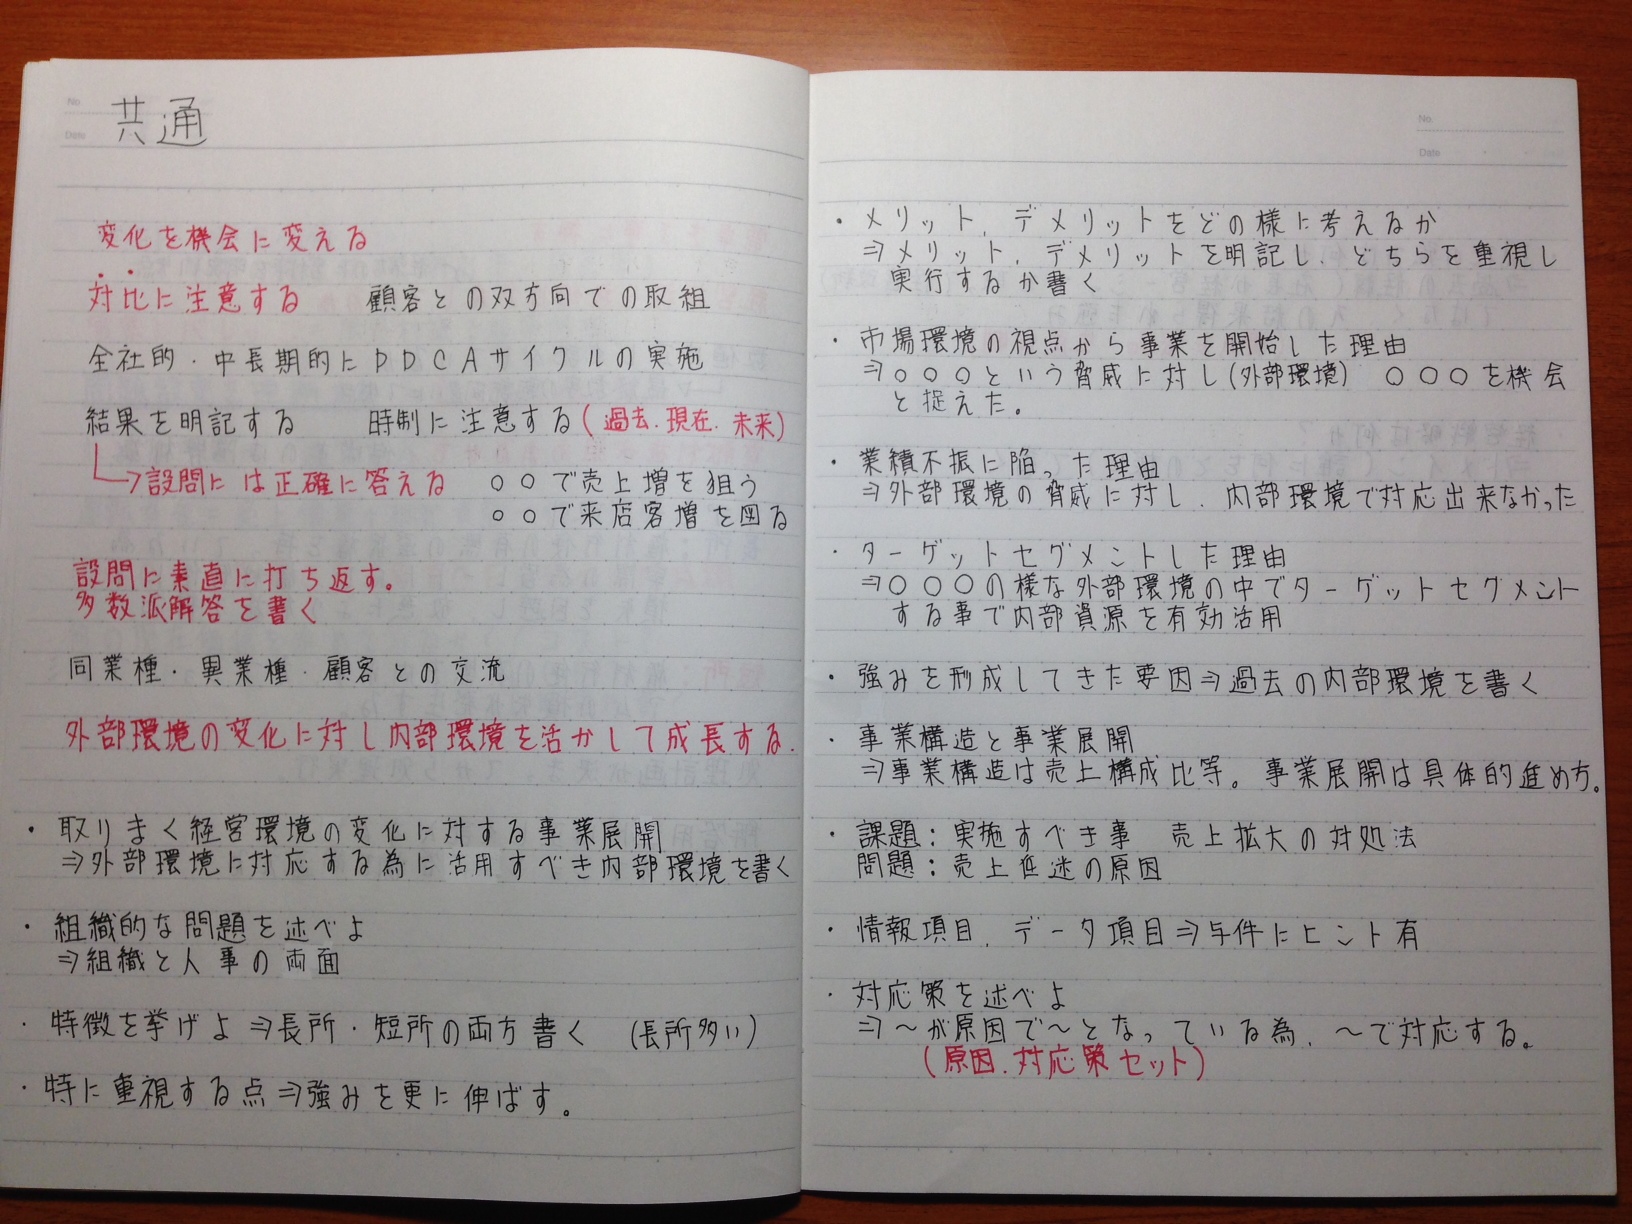 No.
Date
共通
変化を機会に変える
対比に注意する　顧客との双方向での取組
全社的・中長期的にPDCAサイクルの実施
結果を明記する　時制に注意する(過去.現在.未来)
→設問には正確に答える　○○で売上増を狙う
○○で来店客増を図る
設問に素直に打ち返す。
多数派解答を書く
同業種・異業種・顧客との交流
外部環境の変化に対し内部環境を活かして成長する.
・取りまく経営環境の変化に対する事業展開
⇒外部環境に対応する為に活用すべき内部環境を書く
・組織的な問題を述べよ
⇒組織と人事の両面
・特徴を挙げよ⇒長所・短所の両方書く　(長所多い)
・特に重視する点⇒強みを更に伸ばす。
No.
Date
・メリット、デメリットをどの様に考えるか
⇒メリット、デメリットを明記し、どちらを重視し
実行するか書く
・市場環境の視点から事業を開始した理由
⇒○○○という脅威に対し(外部環境)　○○○を機会
と捉えた。
・業績不振に陥った理由
⇒外部環境の脅威に対し、内部環境で対応出来なかった
・ターゲットセグメントした理由
⇒○○○の様な外部環境の中でターゲットセグメント
する事で内部資源を有効活用
・強みを形成してきた要因⇒過去の内部環境を書く
・事業構造と事業展開
⇒事業構造は売上構成比等。事業展開は具体的進め方。
・課題：実施すべき事　売上拡大の対処法
問題：売上低迷の原因
・情報項目、データ項目⇒与件にヒント有
・対応策を述べよ
⇒～が原因で～となっている為、～で対応する。
(原因.対応策セット)